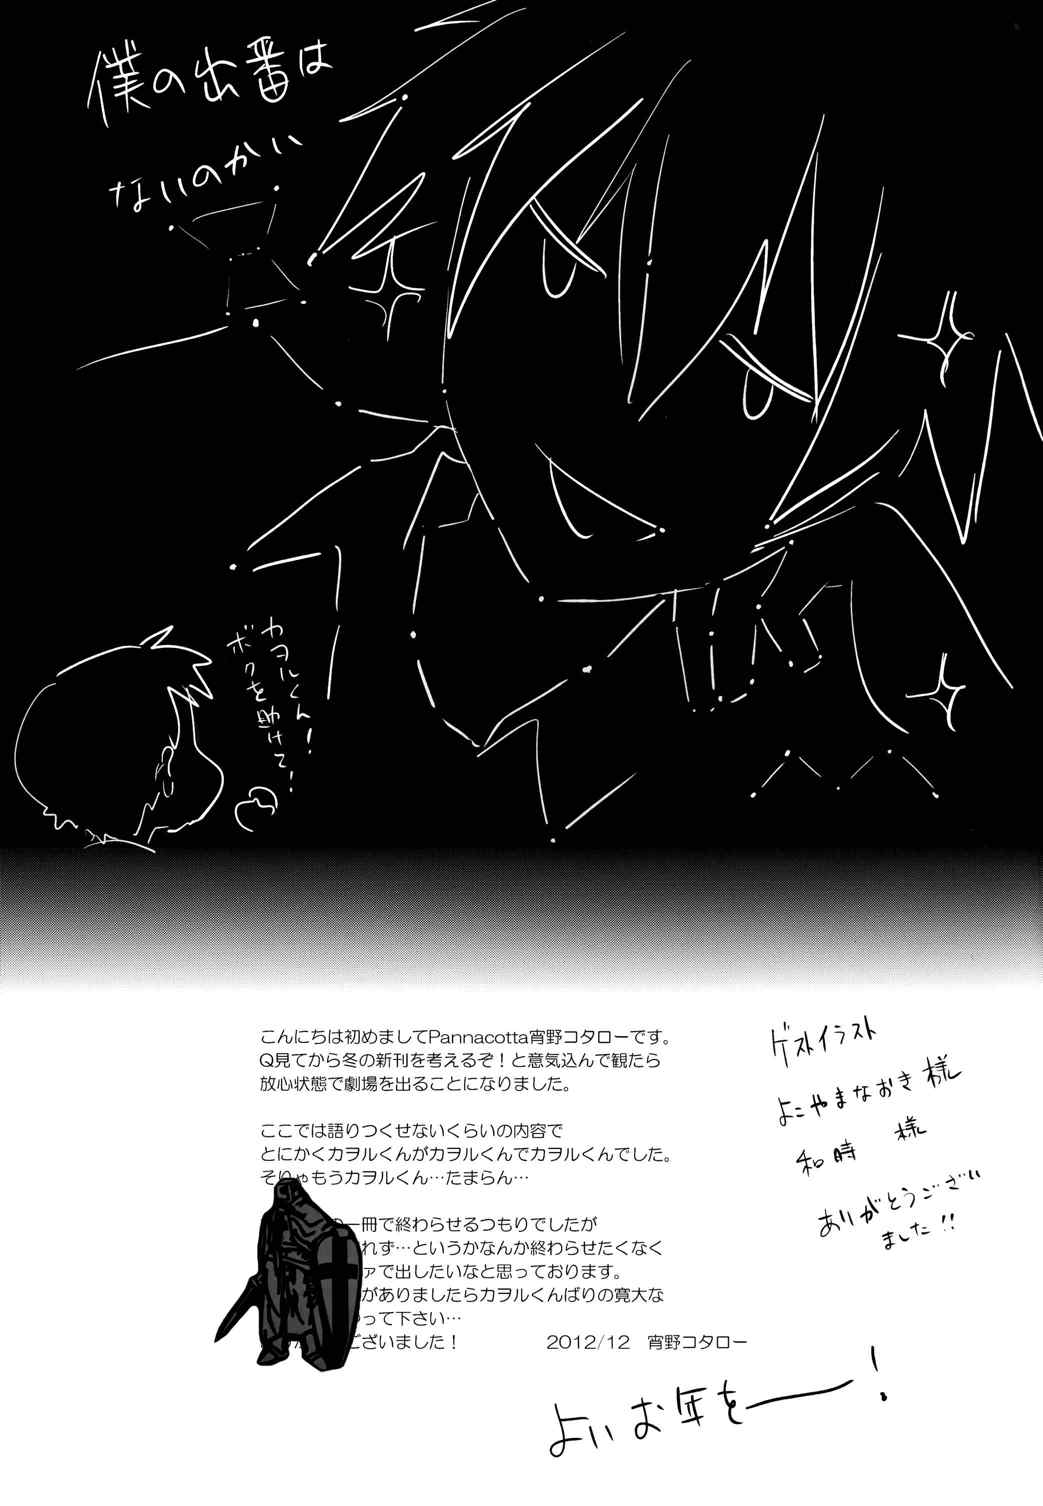 僕の出番は
ないのかい
カヲルくん!
ボクを助けて!
こんにちは初めましてPannacotta宵野コタローです。
Q見てから冬の新刊を考えるぞ!と意気込んで観たら
放心状態で劇場を出ることになりました。
ここでは語りつくせないくらいの内容で
とにかくカヲルくんがカヲルくんでカヲルくんでした。
そりゅもうカヲルくん…たまらん…
一冊で終わらせるつもりでしたが
れず…というかなんか終わらせたくなく
ァで出したいなと思っております。
がありましたらカヲルくんばりの寛大な
って下さい…
ございました!
2012/12 宵野コタロー
ゲストイラスト
よこやまなおき様
和時 様
ありがとうござい
ました!!
よいお年を――!